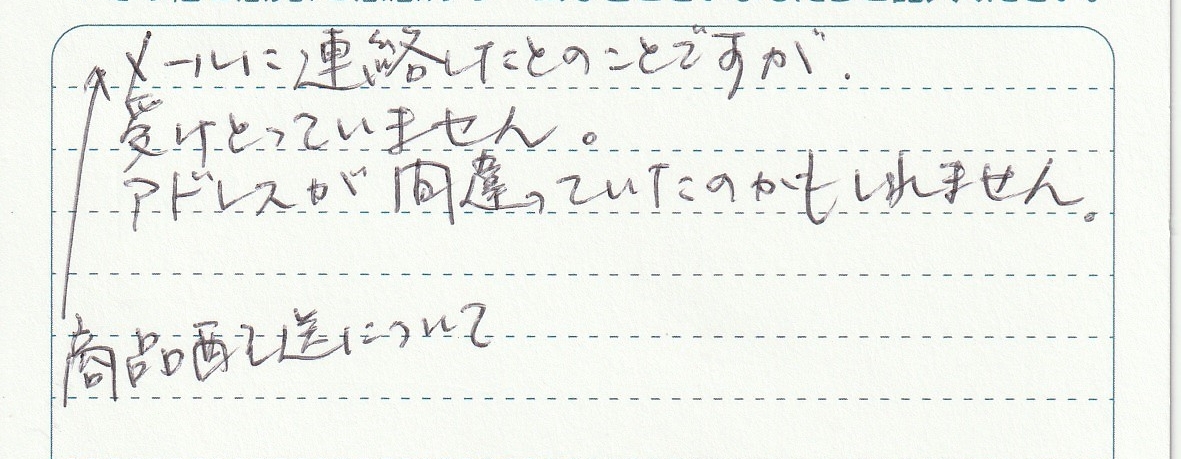 メールに連絡したとのことですが.
受けとっていません。
アドレスが間違っていたのかもしれません。
商品配送について